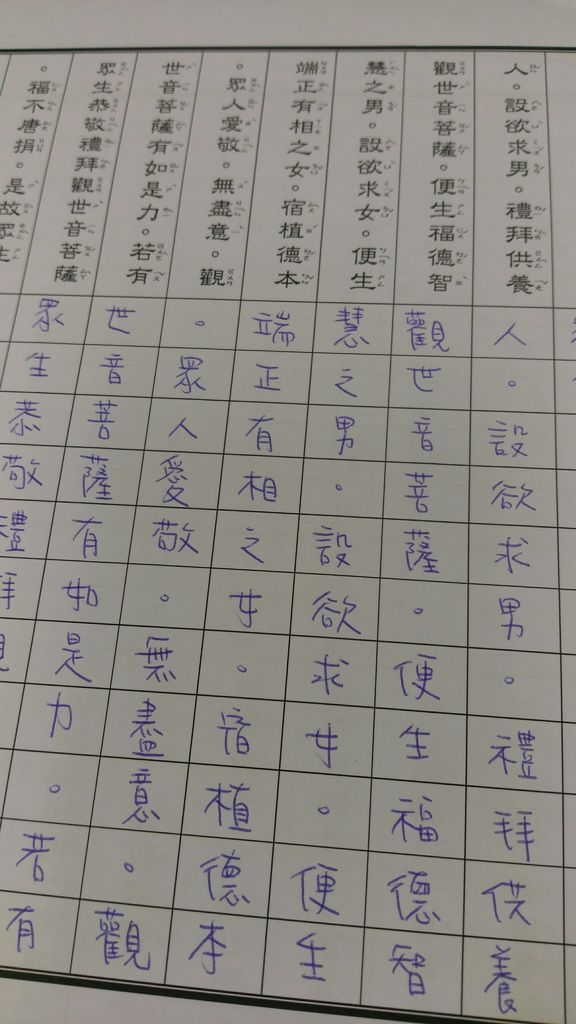 人。設欲求男。禮拜供養
觀世音菩薩。便生福德智
慧之男。設欲求女。便生
端正有相之女。宿植德本
。眾人愛敬。無盡意。觀
世音菩薩有如是力。若有
眾生恭敬禮拜觀世音菩薩
。福不唐捐。是故眾生
人。設欲求男。禮拜供養
觀世音菩薩。便生福德智
慧之男。設欲求女。便生
端正有相之女。宿植德本
。眾人愛敬。無盡意。觀
世音菩薩有如是力。若有
眾生恭敬禮拜觀